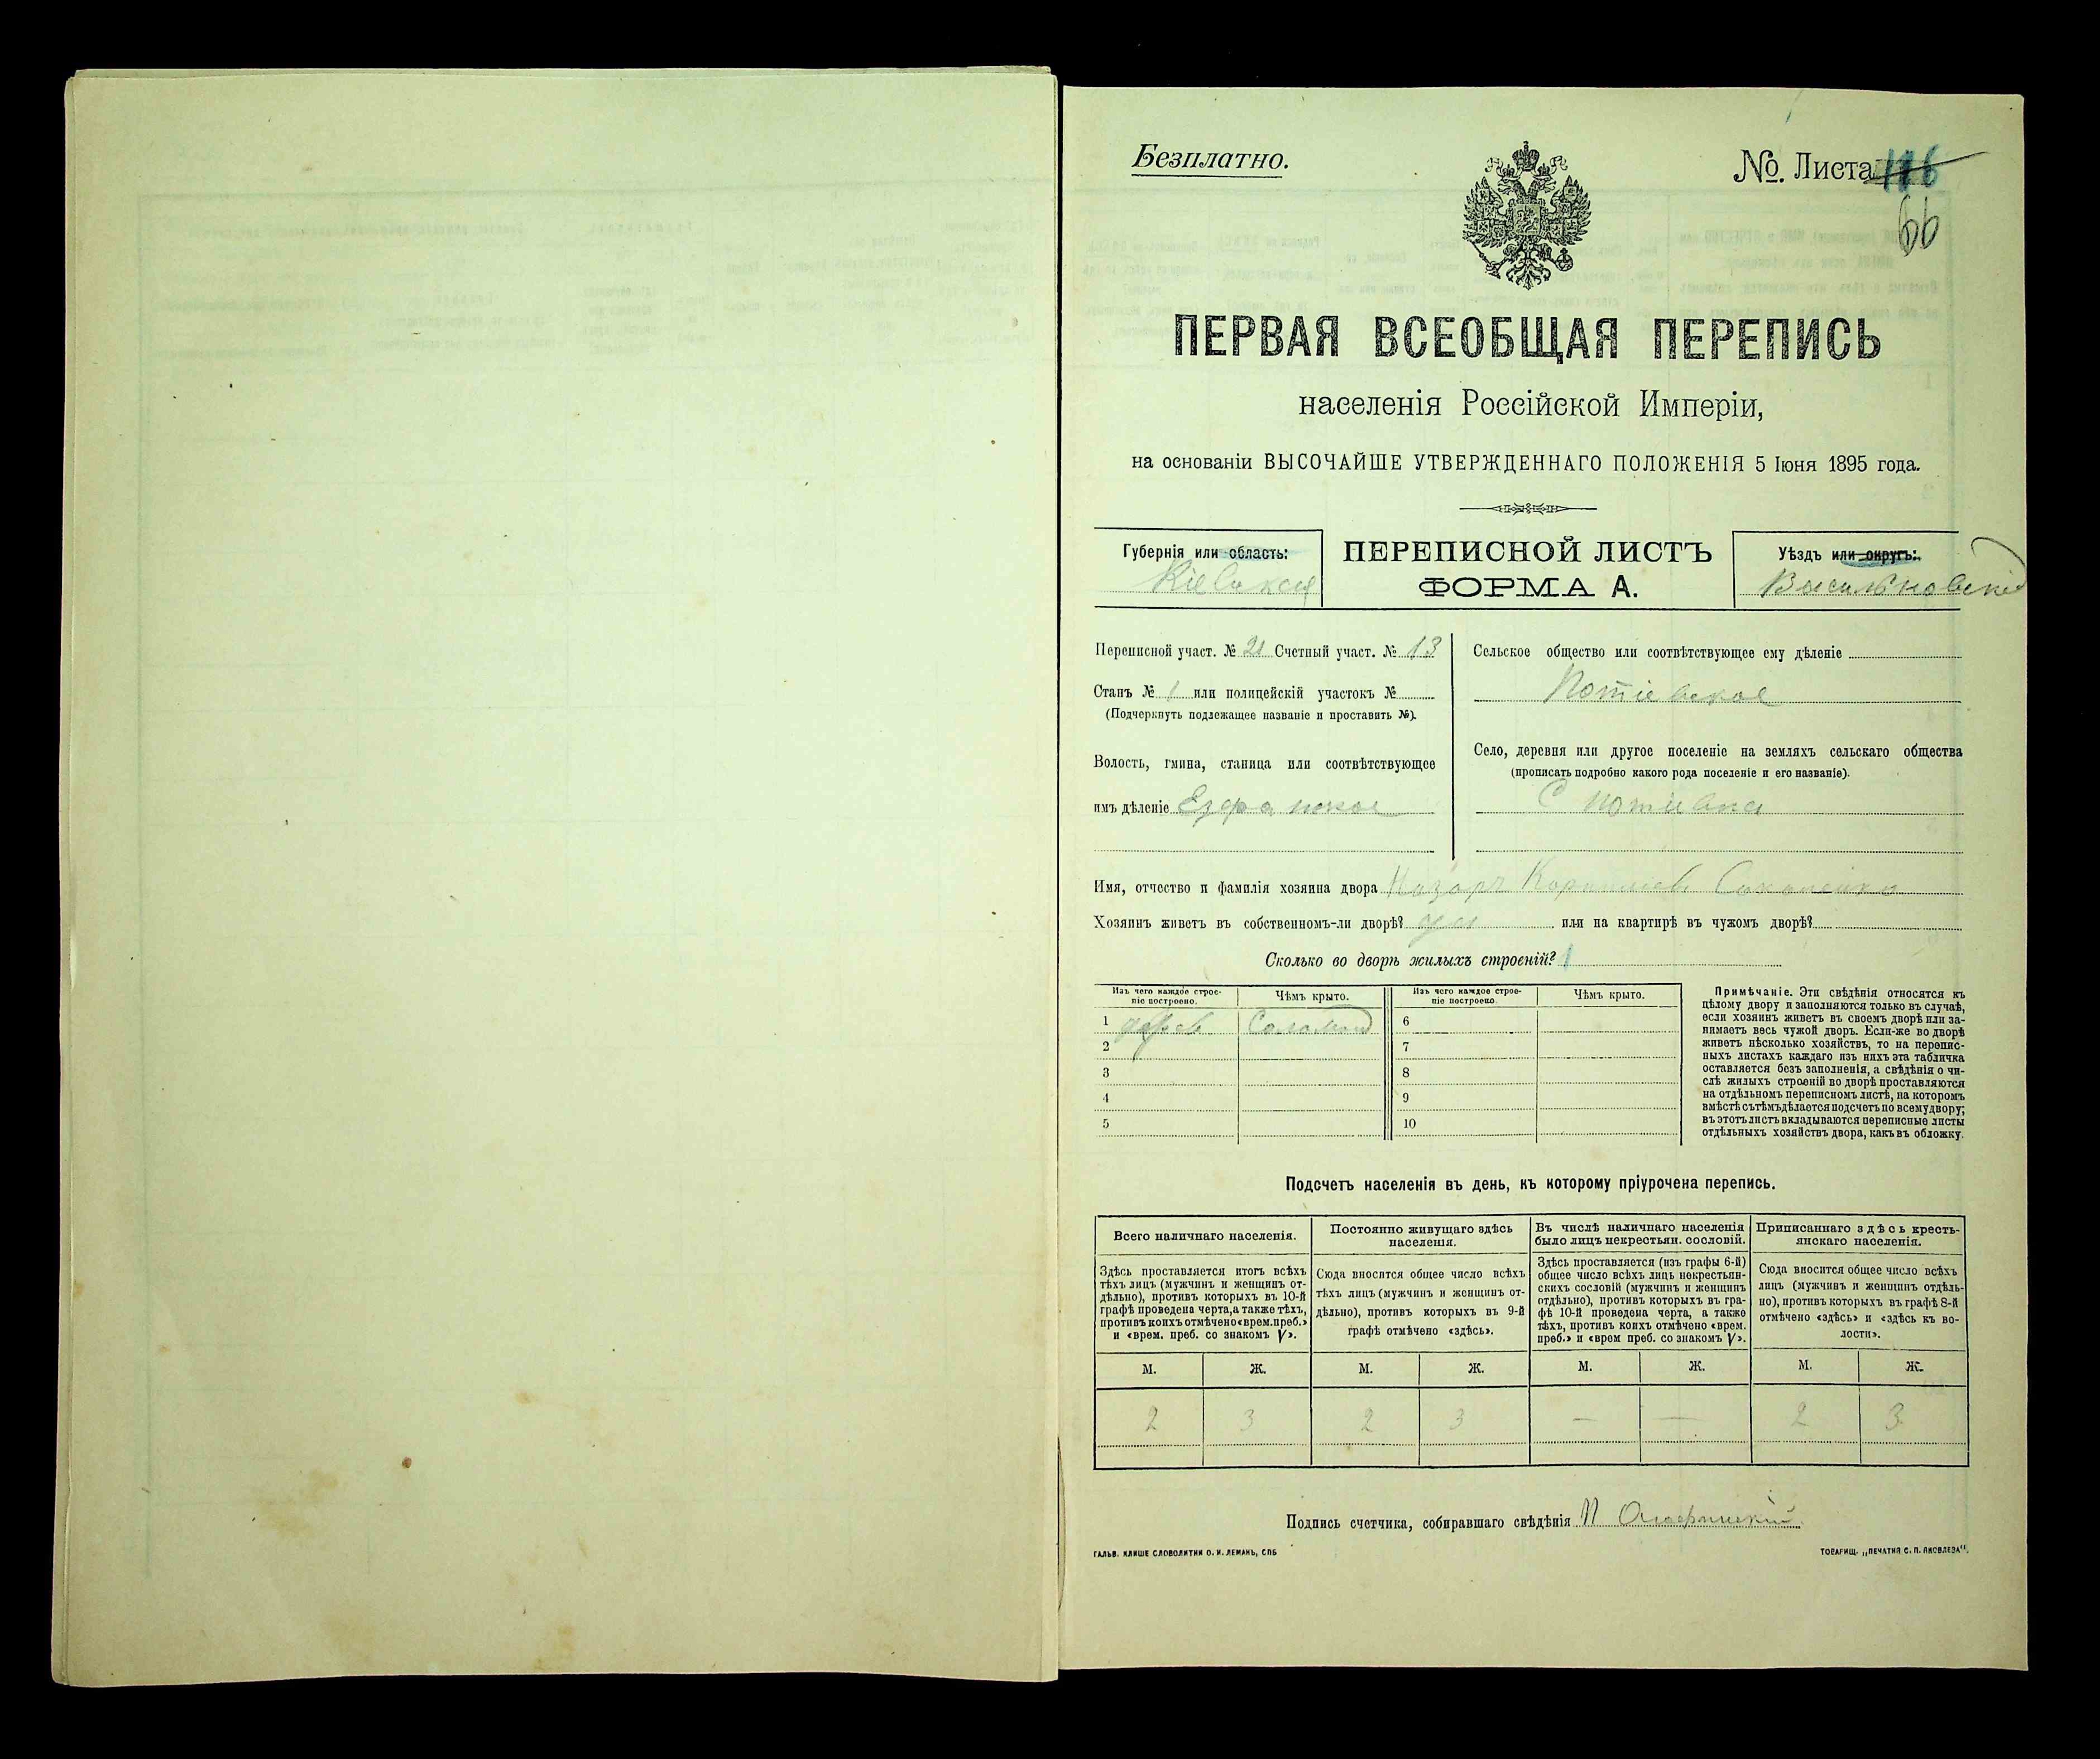 Безплатно.
No. Листа 116
66
ПЕРВАЯ ВСЕОБЩАЯ ПЕРЕПИСЬ
населенія Россійской Имперіи,
на основаніи ВЫСОЧАЙШЕ УТВЕРЖДЕННАГО ПОЛОЖЕНІЯ 5 Іюня 1895 года.
Губернія или область:
Кіевская
ПЕРЕПИСНОЙ ЛИСТЪ
ФОРМА А.
Уѣздъ или округъ:
Васильковскій
Переписной участ. № 21 Счетный участ. № 13
Станъ № 1 или полицейскій участокъ №
(Подчеркнуть подлежащее названіе и проставить №).
Волость, гмина, станица или соотвѣтствующее
имъ дѣленіе Езерянское
Сельское общество или соотвѣтствующее ему дѣленіе
Потіевское
Село, деревня или другое поселеніе на земляхъ сельскаго общества
(прописать подробно какого рода поселеніе и его названіе).
С Потіевка
Имя, отчество и фамилія хозяина двора Назаръ Корнилієвъ
Хозяинъ живетъ въ собственномъ-ли дворѣ? да или на квартирѣ въ чужомъ дворѣ?
Сколько во дворѣ жилыхъ строеній? 1
Изъ чего каждое строе-
ніе построено.
Чѣмъ крыто.
Изъ чего каждое строе-
ніе построено.
Чѣмъ крыто.
1 дерев Соломой 6
2 7
3 8
4 9
5 10
Примѣчаніе. Эти свѣдѣнія относятся къ
цѣлому двору и заполняются только въ случаѣ,
если хозяинъ живетъ въ своемъ дворѣ или за-
нимаетъ весь чужой дворъ. Если-же во дворѣ
живетъ нѣсколько хозяйствъ, то на перепис-
ныхъ листахъ каждаго изъ нихъ эта табличка
оставляется безъ заполненія, а свѣдѣнія о чи-
слѣ жилыхъ строеній во дворѣ проставляются
на отдѣльномъ переписномъ листѣ, на которомъ
вмѣстѣ съ тѣмъ дѣлается подсчетъ по всему двору;
въ этотъ листъ вкладываются переписные листы
отдѣльныхъ хозяйствъ двора, какъ въ обложку.
Подсчетъ населенія въ день, къ которому пріурочена перепись.
Всего наличнаго населенія.
Здѣсь проставляется итогъ всѣхъ
тѣхъ лицъ (мужчинъ и женщинъ от-
дѣльно), противъ которыхъ въ 10-й
графѣ проведена черта, а также тѣхъ,
противъ коихъ отмѣчено «врем. преб.»
и «врем. преб. со знакомъ V».
Постоянно живущаго здѣсь
населенія.
Сюда вносится общее число всѣхъ
тѣхъ лицъ (мужчинъ и женщинъ от-
дѣльно), противъ которыхъ въ 9-й
графѣ отмѣчено «здѣсь».
Въ числѣ наличнаго населенія
было лицъ некрестьян. сословій.
Здѣсь проставляется (изъ графы 6-й)
общее число всѣхъ лицъ некрестьян-
скихъ сословій (мужчинъ и женщинъ
отдѣльно), противъ которыхъ въ гра-
фѣ 10-й проведена черта, а также
тѣхъ, противъ коихъ отмѣчено «врем.
преб.» и «врем преб. со знакомъ V».
Приписаннаго здѣсь кресть-
янскаго населенія.
Сюда вносится общее число всѣхъ
лицъ (мужчинъ и женщинъ отдѣль-
но), противъ которыхъ въ графѣ 8-й
отмѣчено «здѣсь» и «здѣсь къ во-
лости».
М. Ж. М. Ж. М. Ж. М. Ж.
2 3 2 3 — — 2 3
Подпись счетчика, собиравшаго свѣдѣнія
ГАЛЬВ. КЛИШЕ СЛОВОЛИТНИ О. И. ЛЕМАНЪ, СПБ
ТОВАРИЩ. „ПЕЧАТНЯ С. П. ЯКОВЛЕВА".